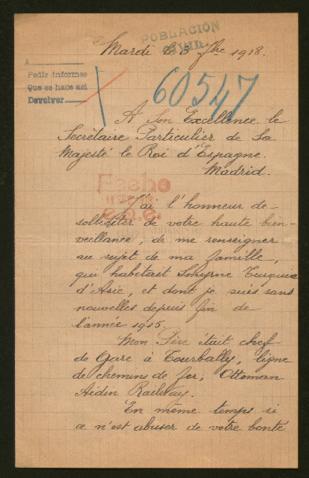 POBLACIÓN
CIVIL
Mardi 1918.
A
Pedir informes
Que se hace así
Devolver
60547
A Son Excellence le
Secrétaire Particulier de Sa
Majesté le Roi d'Espagne.
Madrid.
Fecho
J'ai l'honneur de
solliciter de votre haute bien-
veillance, de me renseigner
au sujet de ma famille,
qui habitait Smyrne Turquie
d'Asie, et dont je suis sans
nouvelles depuis fin de
l'année 1915.
Mon Père était chef
de Gare à Tourbally, ligne
de chemins de fer, Ottoman
Aïdin Railway.
En même temps si
ce n'est abuser de votre bonté